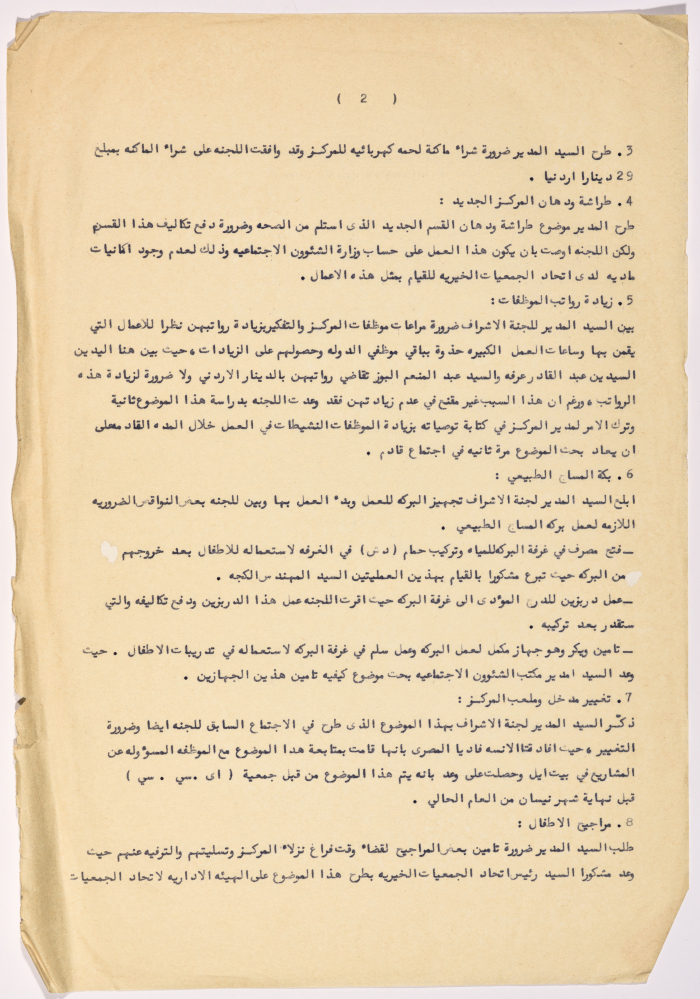 ( 2 )
3. طرح السيد المدير ضرورة شراء ماكنة لحمه كهربائيه للمركز وقد وافقت اللجنه على شراء الماكنه بمبلغ
29 دينارا اردنيا .
4. طراشة ودهان المركز الجديد :
طرح المدير موضوع طراشة ودهان القسم الجديد الذى استلم من الصحه وضرورة دفع تكاليف هذا القسم
ولكن اللجنه اوصت بان يكون هذا العمل على حساب وزارة الشئوون الاجتماعيه وذلك لعدم وجود امكانيات
ماديه لدى اتحاد الجمعيات الخيريه للقيام بمثل هذه الاعمال .
5. زيادة رواتب الموظفات :
بين السيد المدير للجنة الاشراف ضرورة مراعات موظفات المركز والتفكير بزيادة رواتبهن نظرا للاعمال التي
يقمن بها وساعات العمل الكبيره حذوة بباقي موظفي الدوله وحصولهم على الزيادات ، حيث بين هنا اليدين
السيدين عبد القادر عرفه والسيد عبد المنعم البوز تقاضي رواتبهن بالدينار الاردني ولا ضرورة لزيادة هذه
الرواتب ، ورغم ان هذا السبب غير مقنع في عدم زيادتهن فقد وعدت اللجنه بدراسة هذا الموضوع ثانية
وترك الامر لمدير المركز في كتابة توصياته بزيادة الموظفات النشيطات في العمل خلال المده القادمه على
ان يعاد بحث الموضوع مرة ثانيه في اجتماع قادم .
6. بكة المساج الطبيعي :
ابلغ السيد المدير لجنة الاشراف تجهيز البركه للعمل وبدء العمل بها وبين للجنه بعض النواقص الضروريه
اللازمه لعمل بركه المساج الطبيعي .
ــ فتح مصرف في غرفة البركه للمياه وتركيب حمام (دش) في الغرفه لاستعماله للاطفال بعد خروجهم
من البركه حيث تبرع مشكورا بالقيام بهذين العمليتين السيد المهندس الكجه .
ــ عمل دربزين للدرج المؤدى الى غرفة البركه حيث اقرت اللجنه عمل هذا الدربزين ودفع تكاليفه والتي
ستقدر بعد تركيبه .
ــ تامين ويكر وهو جهاز مكمل لعمل البركه وعمل سلم في غرفة البركه لاستعماله في تدريبات الاطفال . حيث
وعد السيد امدير مكتب الشئوون الاجتماعيه بحث موضوع كيفيه تامين هذين الجهازين .
7. تغيير مدخل وملعب المركز :
ذكّر السيد المدير لجنة الاشراف بهذا الموضوع الذى طرح في الاجتماع السابق للجنه ايضا وضرورة
التغيير ، حيث افادقتا الانسه فاديا المصرى بانها قامت بمتابعة هدا الموضوع مع الموظفه المسؤوله عن
المشاريع في بيت ايل وحصلت على وعد بانه يتم هذا الموضوع من قبل جمعية ( اى .سي . سي )
قبل نهاية شهر نيسان من العام الحالي .
8. مراجيح الاطفال :
طلب السيد المدير ضرورة تامين بعض المراجيح لقضاء وقت فراغ نزلاء المركز وتسليتهم والترفيه عنهم حيث
وعد مشكورا السيد رئيس اتحاد الجمعيات الخيريه بطرح هذا الموضوع على الهيئه الاداريه لاتحاد الجمعيات